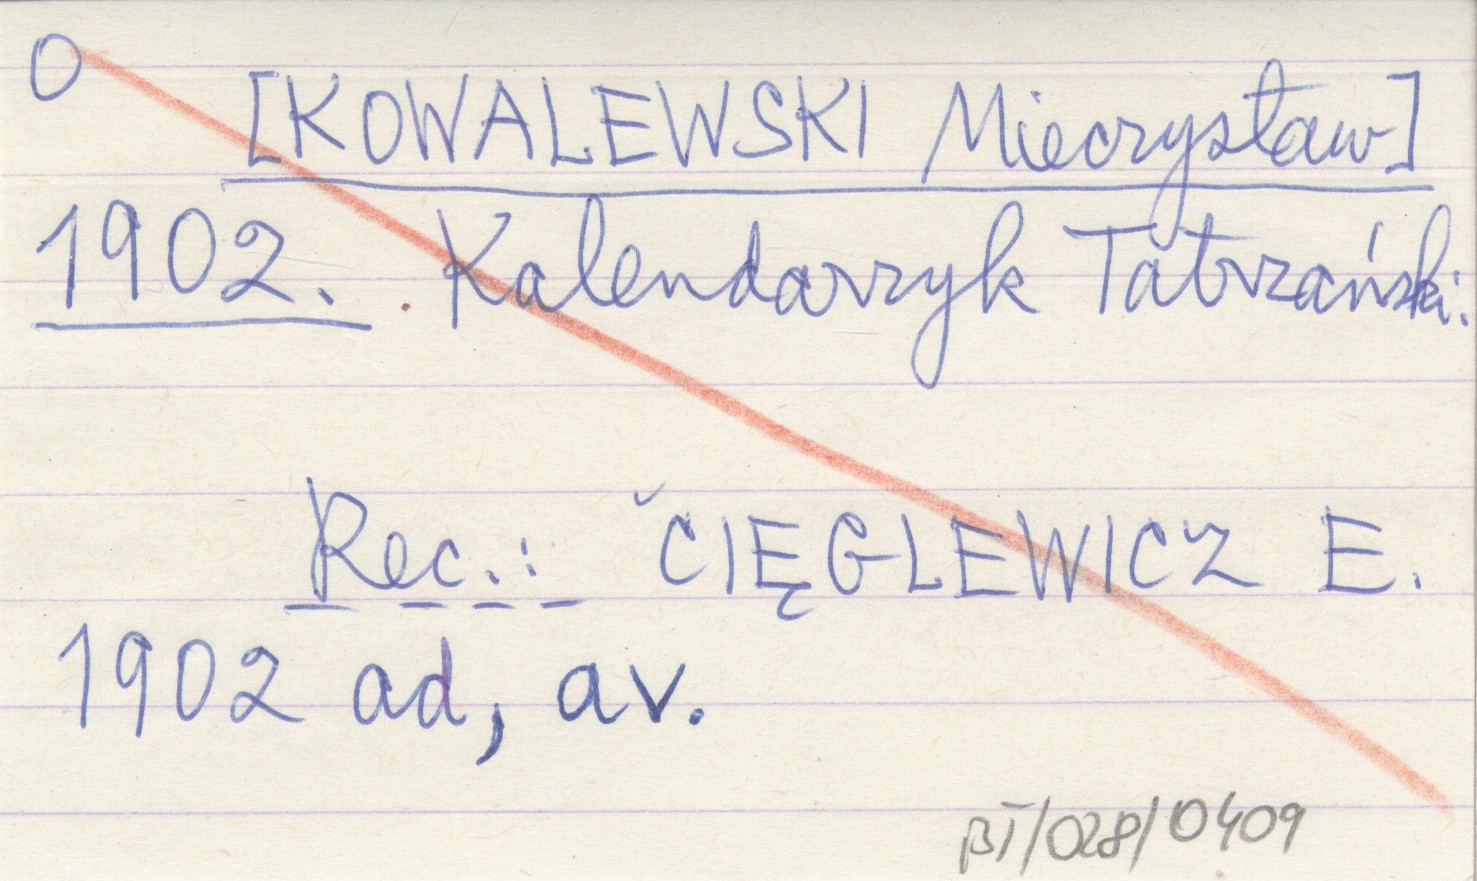 O
[KOWALEWSKI Mieczysław]
1902. Kalendarzyk Tatrzański.
Rec.: CIĘGLEWICZ E.
1902 ad, av.
BT/028/0409